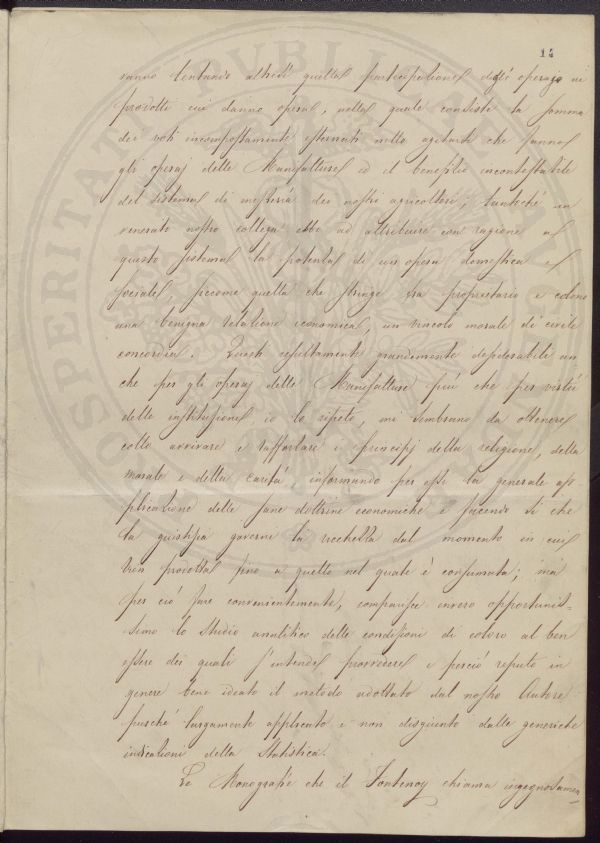 14
vanno tentando altresì quella partecipazione degli operaj ai
prodotti cui danno opera, nella quale consiste la somma
dei voti incompostamente esternati nello agitarsi che fanno
gli operaj delle Manifatture ed il benefizio incontestabile
del sistema di mezzeria dei nostri agricoltori; tantoché un
venerato nostro collega ebbe ad attribuire con ragione a
questo sistema la potenza di un'opera domestica e
sociale, siccome quella che stringe fra proprietario e colono
una benigna relazione economica, un vincolo morale di civile
concordia. Questi resultamenti grandemente desiderabili an
che per gli operaj delle Manifatture più che per virtù
delle instituzioni, io lo ripeto, mi sembrano da ottenere
collo avvivare e raffortare i principj della religione, della
morale e della carità informando per essi la generale ap
plicazione delle sane dottrine economiche e facendo sì che
la giustizia governi la ricchezza dal momento in cui
vien prodotta fino a quello nel quale è consumata; ma
per ciò fare convenientemente, comparisce invero opportunis=
simo lo studio analitico delle condizioni di coloro al ben
essere dei quali s'intende provvedere e perciò reputo in
genere bene ideato il metodo adottato dal nostro Autore
purché largamente applicato e non disgiunto dalle generiche
indicazioni della Statistica.
Le Monografie che il Fontenay chiama ingegnosamen=
PROSPERITATI PUBLICAE AUGENDAE